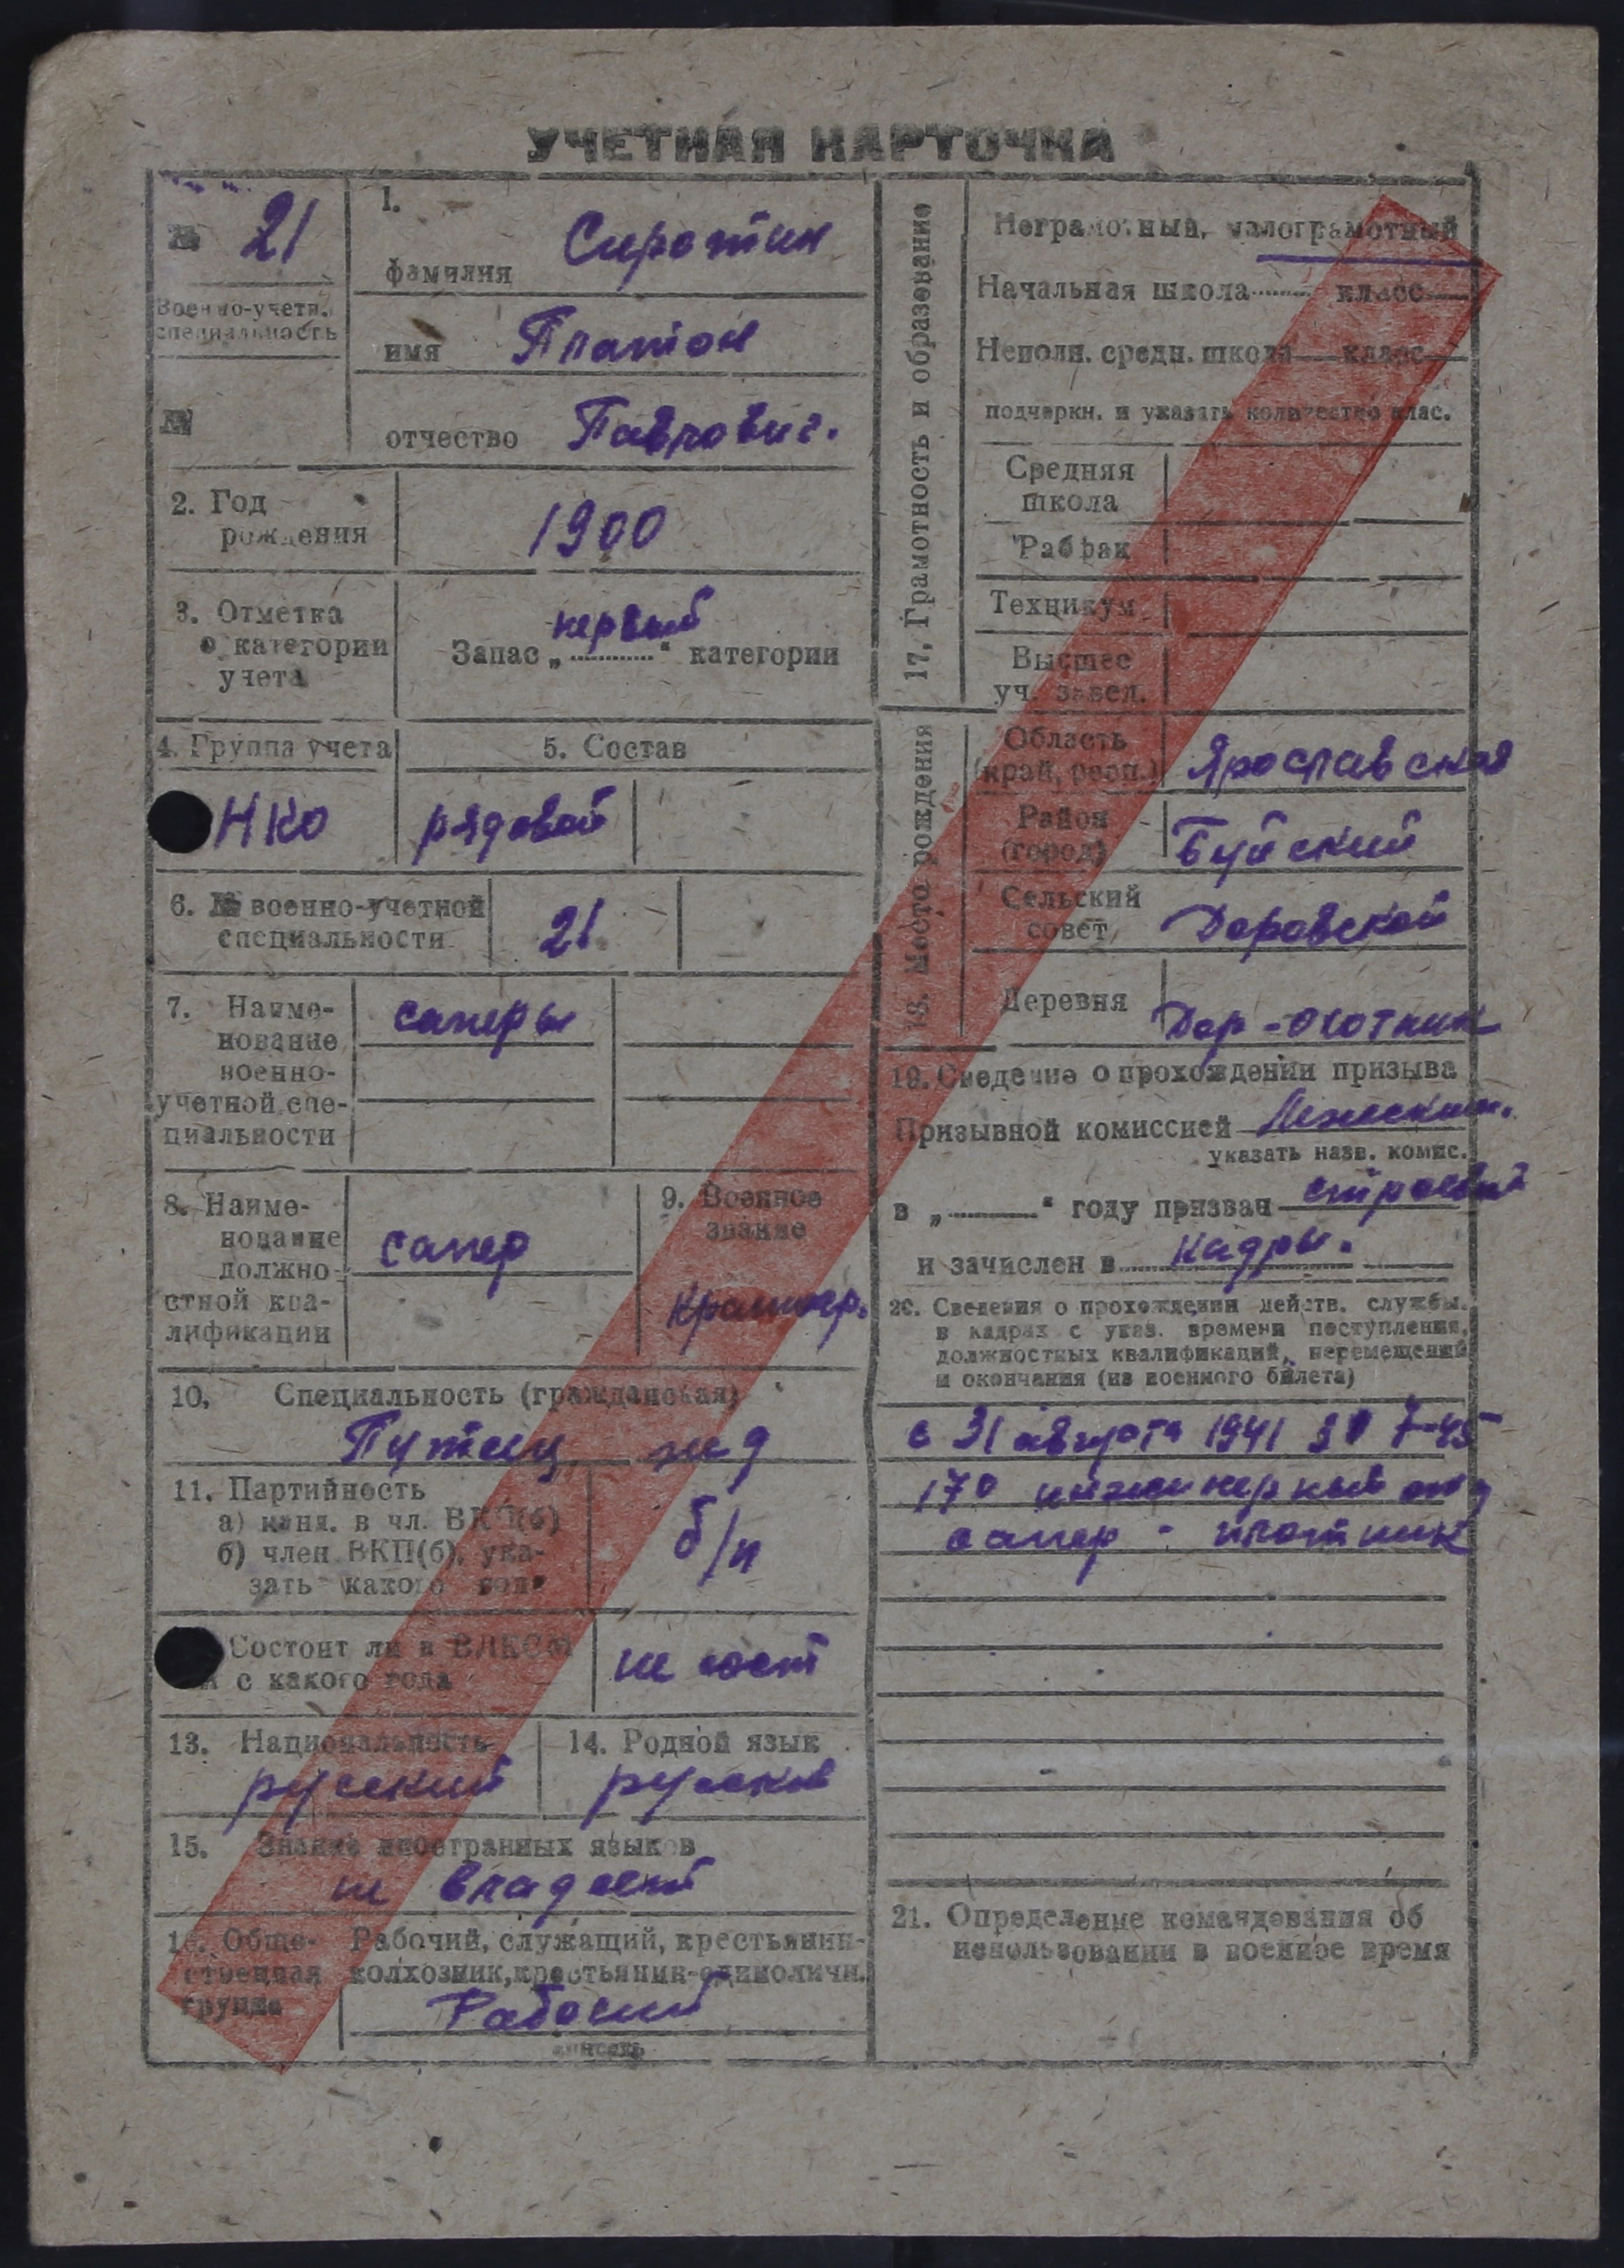 УЧЕТНАЯ КАРТОЧКА
№ 21
Военно-учетн.
специальность
№
1.
фамилия Сиротин
имя Платон
отчество Павлович.
2. Год
рождения
1900
3. Отметка
о категории
учета
первый
Запас „ “ категории
4. Группа учета
НКО
5. Состав
рядовой
6. № военно-учетной
специальности
21
7. Наиме-
нование
военно-
учетной спе-
циальности
саперы
8. Наиме-
нование
должно-
стной ква-
лификации
сапер
9. Военное
звание
Красноар.
10. Специальность (гражданская)
Путеец жд
11. Партийность
а) канд. в чл. ВКП(б)
б) член ВКП(б), ука-
зать какого года
б/п
Состоит ли в ВЛКСМ
и с какого года
не сост
13. Национальность
русский
14. Родной язык
русский
15. Знание иностранных языков
не владеет
16. Обще-
ственная
группа
Рабочий, служащий, крестьянин-
колхозник, крестьянин-единоличн.
Рабочий
вписать
17. Грамотность и образование
Неграмотный, малограмотный
Начальная школа класс
Неполн. средн. школа класс
подчеркн. и указать количество клас.
Средняя
школа
Рабфак
Техникум
Высшее
уч. завед.
18. Место рождения
Область
(край, респ.)
Ярославская
Район
(город)
Буйский
Сельский
совет
Доровской
Деревня
Дор-охотник
19. Сведение о прохождении призыва
Призывной комиссией
указать назв. комис.
в „ “ году призван строевой
и зачислен в кадры.
20. Сведения о прохождении действ. службы
в кадрах с указ. времени поступления,
должностных квалификаций, перемещений
и окончания (из военного билета)
с 31 августа 1941 7-45
170 инжинерный
сапер - плотник
21. Определение командования об
использовании в военное время